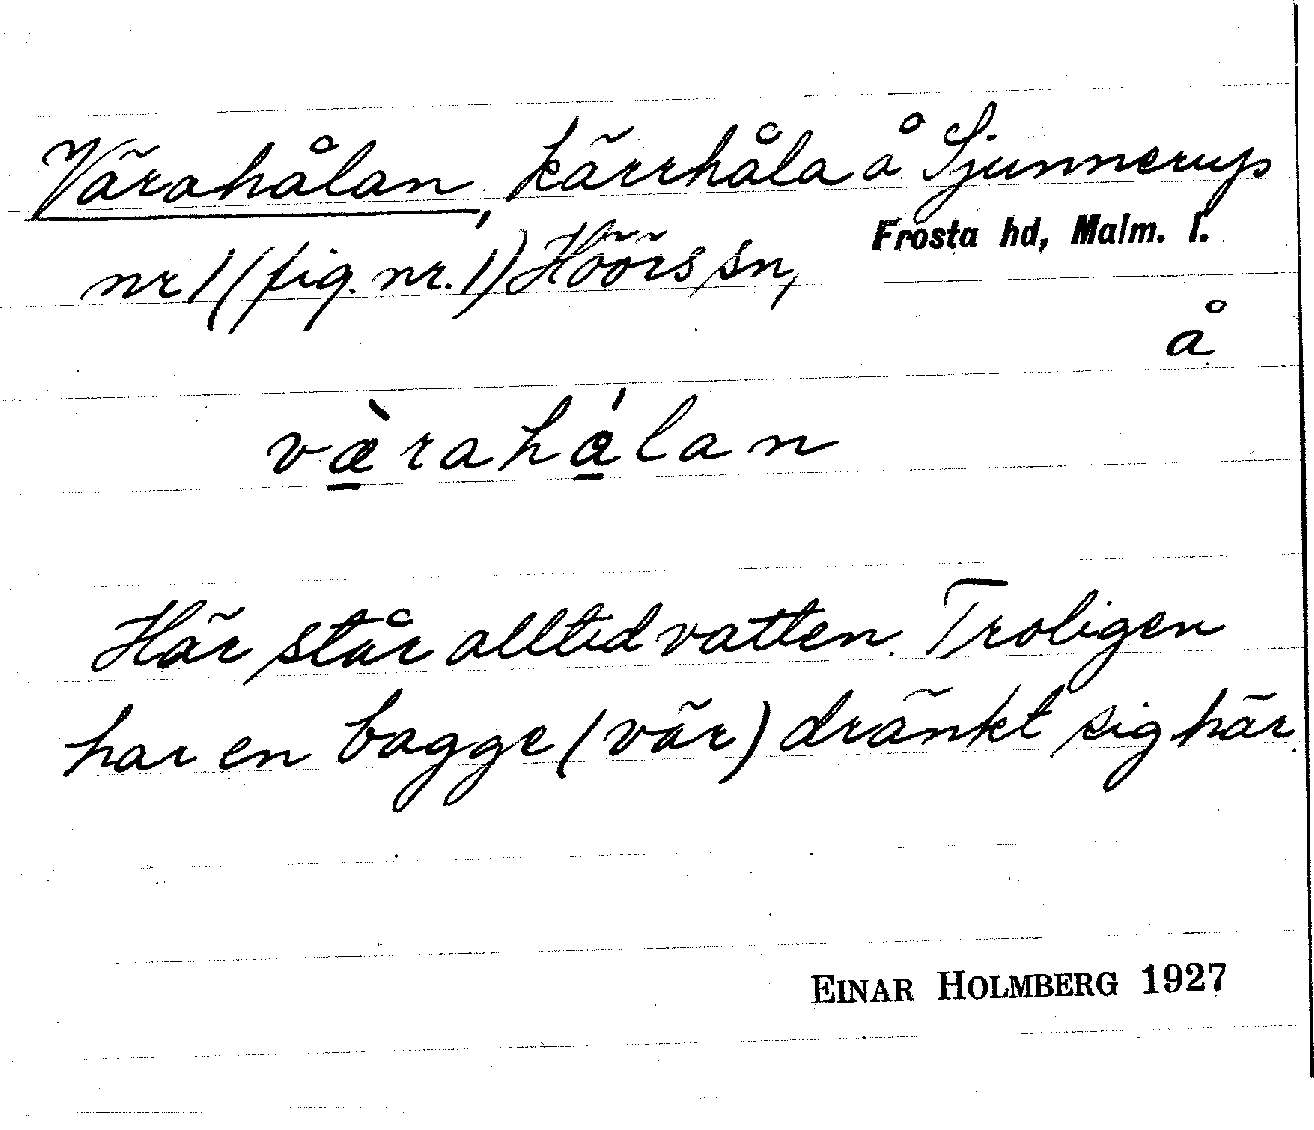 Värahålan, kärrhåla å Sjunnerup
nr 1 (fig. nr. 1) Höörs sn, Frosta hd, Malm. l.
å
væ̀rahålan
Här står alltid vatten. Troligen
har en bagge (vär) dränkt sig här.
EINAR HOLMBERG 1927